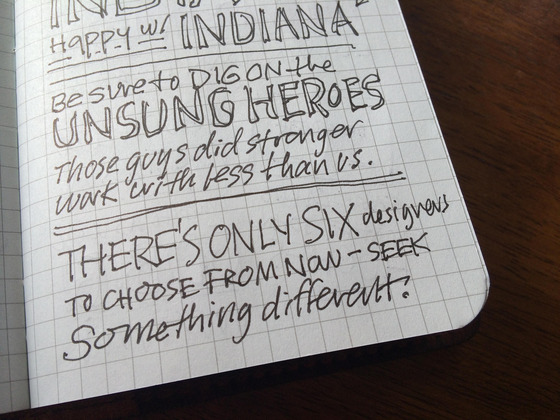 Happy w/ INDIANA
Be sure to DIG ON the
UNSUNG HEROES
Those guys did stronger
work with less than us.
THERE'S ONLY SIX designers
TO CHOOSE FROM NOW - SEEK
Something different?